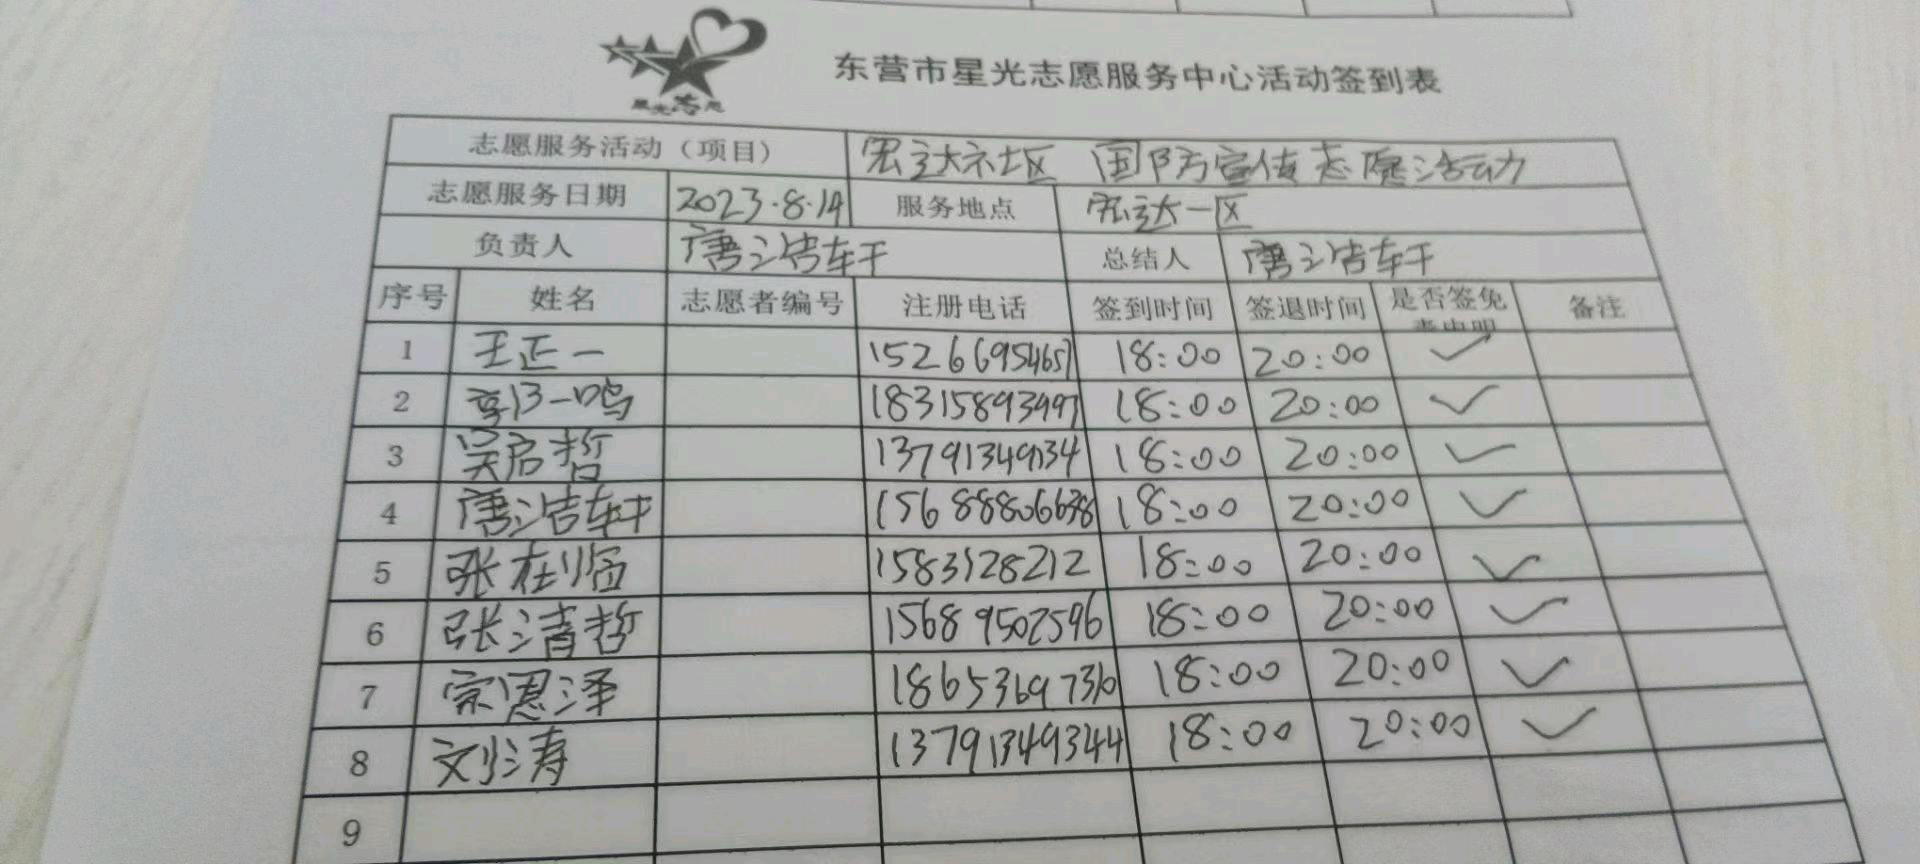 星光志愿
东营市星光志愿服务中心活动签到表
志愿服务活动（项目） 宏达社区 国防宣传志愿活动
志愿服务日期 2023.8.14 服务地点 宏达一区
负责人 唐浩轩 总结人 唐浩轩
序号 姓名 志愿者编号 注册电话 签到时间 签退时间 是否签免 备注
1 王正一 15266954657 18:00 20:00 ✓
2 一鸣 18315893497 18:00 20:00 ✓
3 吴启哲 13791349134 18:00 20:00 ✓
4 唐浩轩 18:00 20:00 ✓
5 张在临 18:00 20:00 ✓
6 张清哲 15689502596 18:00 20:00 ✓
7 宗恩泽 18653697310 18:00 20:00 ✓
8 刘涛 13791349344 18:00 20:00 ✓
9